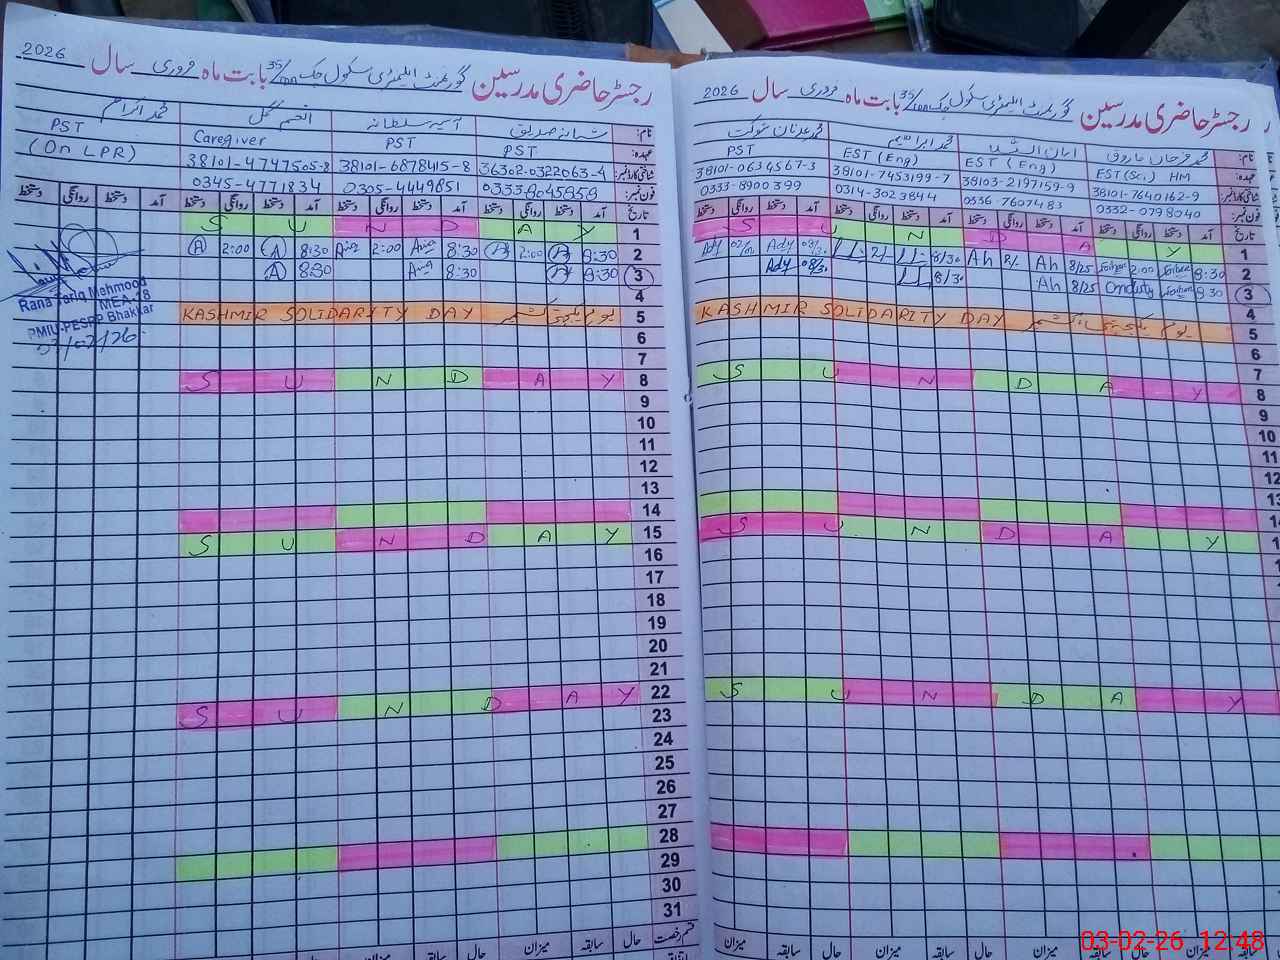 رجسٹر حاضری مدرسین گورنمنٹ ایلیمنٹری سکول چک 35/ML بابت ماہ فروری سال 2026
نام: شبانہ صدیق آسیہ سلطانہ انعم گل محمد اکرام
عہدہ: PST PST Caregiver PST
(On LPR)
شناختی کارڈ نمبر: 36302-0322063-4 38101-6878415-8 38101-4747505-8
فون نمبر: 0333-8045959 0305-4449851 0345-4771834
تاریخ آمد دستخط روانگی دستخط آمد دستخط روانگی دستخط آمد دستخط روانگی دستخط آمد دستخط روانگی دستخط
S U N D A Y 1
A 2:00 A 8:30 2:00 8:30 2:00 8:30 2
A 8:30 8:30 8:30 3
4
KASHMIR SOLIDARITY DAY یوم یکجہتی کشمیر 5
6
7
S U N D A Y 8
9
10
11
12
13
14
S U N D A Y 15
16
17
18
19
20
21
S U N D A Y 22
23
24
25
26
27
28
29
30
31
قسم رخصت حال سابقہ میزان حال سابقہ میزان حال
Rana Tariq Mehmood
MEA-18
PMIU-PESRP Bhakkar
03/02/26
رجسٹر حاضری مدرسین گورنمنٹ ایلیمنٹری سکول چک 35/ML بابت ماہ فروری سال 2026
نام: محمد فرحان فاروق امان اللہ محمد ابراہیم محمد عدنان شوکت
عہدہ: EST (Sci) HM EST (Eng) EST (Eng) PST
شناختی کارڈ نمبر: 38101-7640162-9 38103-2197159-9 38101-7453199-7 38101-0634567-3
فون نمبر: 0332-0798040 0336-7607483 0314-3023844 0333-8900399
تاریخ آمد دستخط روانگی دستخط آمد دستخط روانگی دستخط آمد دستخط روانگی دستخط آمد دستخط روانگی دستخط
S U N D A Y 1
Ady Ady 8/30 Ah Ah 8/25 2:00 8:30 2
Ady 8/30 Ah 8/25 Onduty 8:30 3
4
KASHMIR SOLIDARITY DAY یوم یکجہتی کشمیر 5
6
7
S U N D A Y 8
9
10
11
12
13
14
S U N D A Y
S U N D A Y
میزان سابقہ حال میزان سابقہ حال میزان سابقہ حال میزان سابقہ
03-02-26 12:48